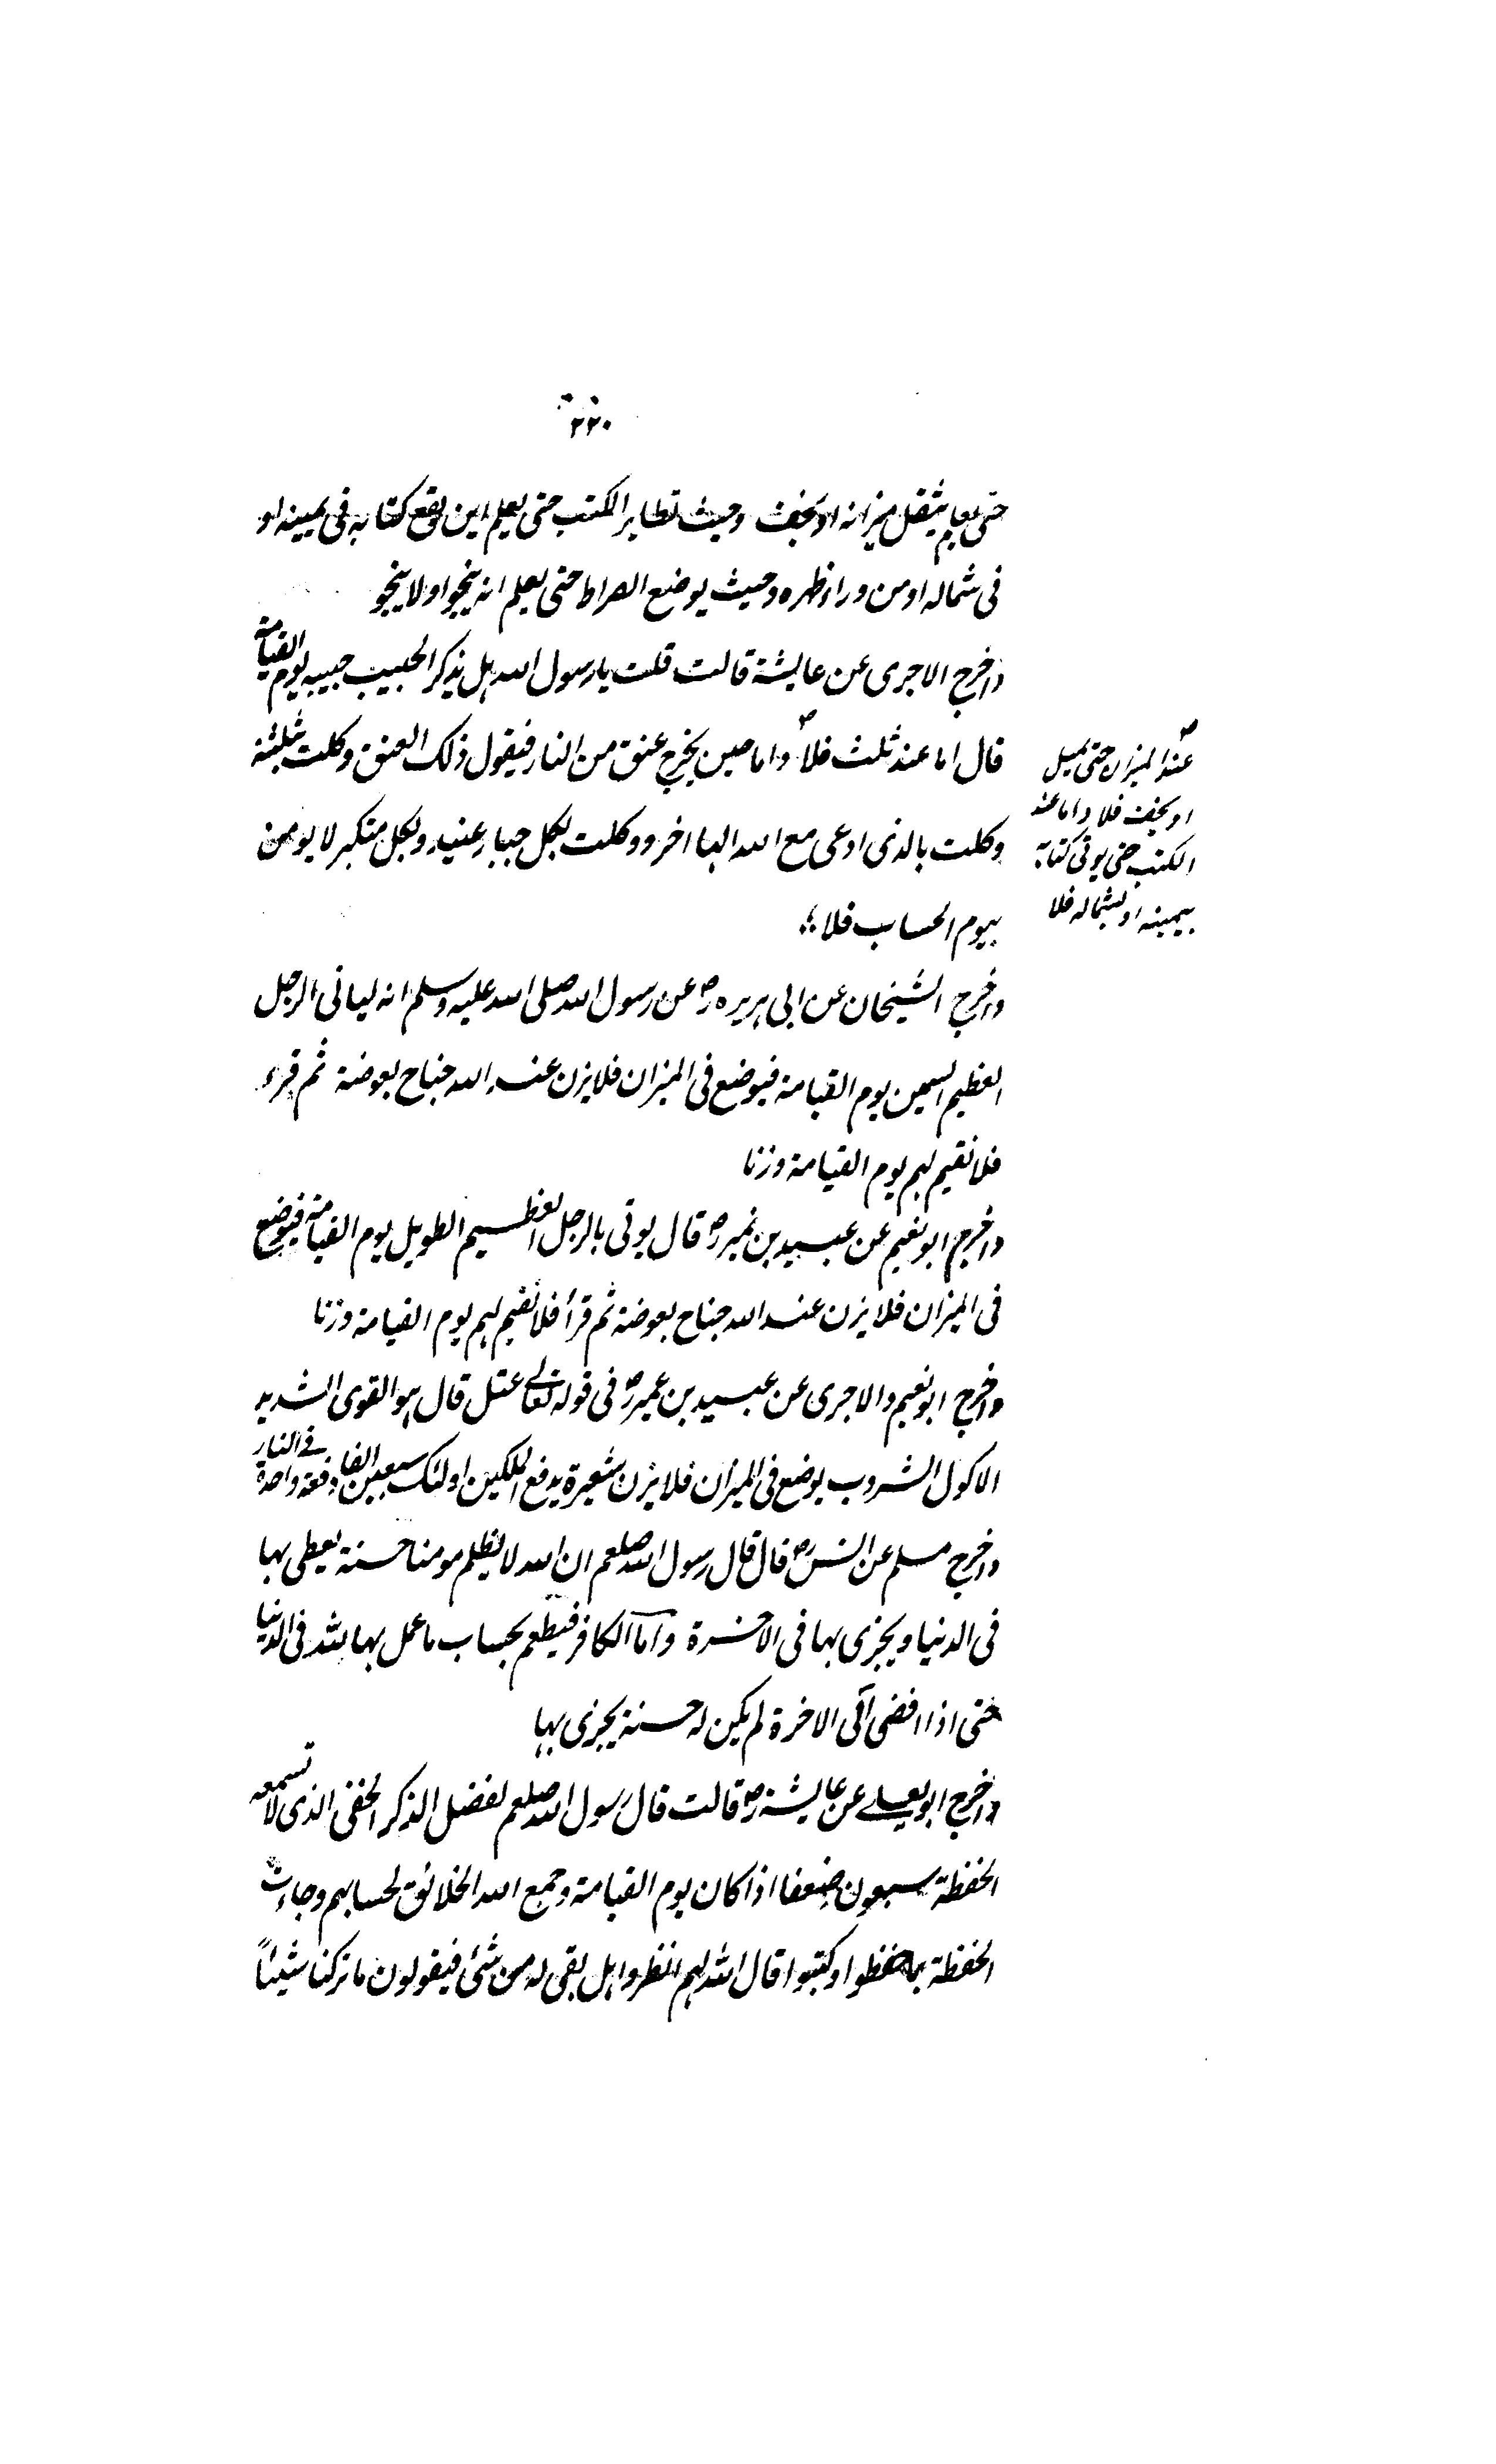 ٢٢٠
حتى يعلم يثقل ميزانه او يخف وحيث تطاير الكتب حتى يعلم اين يقع كتابه فى يمينه او
فى شماله او من وراء ظهره وحيث يوضع الصراط حتى يعلم انه ينجو او لا ينجو
واخرج الاجرى عن عايشة قالت قلت يا رسول الله هل يذكر الحبيب حبيبه يوم القيامة
قال اما عند ثلث فلا واما حين يخرج عنق من النار فيقول ذلك العنق وكلت بثلثة
وكلت بالذى ادعى مع الله الها اخر ووكلت بكل جبار عنيد وبكل متكبر لا يومن
بيوم الحساب فلا
عند الميزان حتى يميل
او يخف فلا واما عند
الكتب حتى يوتى كتابه
بيمينه او بشماله فلا
واخرج الشيخان عن ابى هريره رض عن رسول الله صلى الله عليه وسلم انه لياتى الرجل
العظيم السمين يوم القيامة فيوضع فى الميزان فلا يزن عند الله جناح بعوضة ثم قرء
فلا نقيم لهم يوم القيامة وزنا
واخرج ابو نعيم عن عبيد بن نمير رض قال يوتى بالرجل العظيم الطويل يوم القيامة فيوضع
فى الميزان فلا يزن عند الله جناح بعوضة ثم قرأ فلا نقيم لهم يوم القيامة وزنا
واخرج ابو نعيم والاجرى عن عبيد بن عمير رض فى قوله تعالى عتل قال هو القوى الشديد
الاكول الشروب يوضع فى الميزان فلا يزن شعيرة يدفع الملكين اولئك سبعين الفا دفعة واحدة فى النار
واخرج مسلم عن انس رض قال قال رسول الله صلعم ان الله لا يظلم مومنا حسنة يعطى بها
فى الدنيا ويجزى بها فى الاخرة واما الكافر فيطعم بحساب ما عمل بها لله فى الدنيا
حتى اذا افضى الى الاخرة لم يكن له حسنة يجزى بها
واخرج ابو يعلى عن عايشة رض قالت قال رسول الله صلعم لفضل الذكر الخفى الذى لا تسمعه
الحفظة سبعون ضعفا اذا كان يوم القيامة وجمع الله الخلائق لحسابهم وجاءت
الحفظة بما حفظوا وكتبوا قال الله لهم انظروا هل بقى له من شئ فيقولون ما تركنا شيئاً